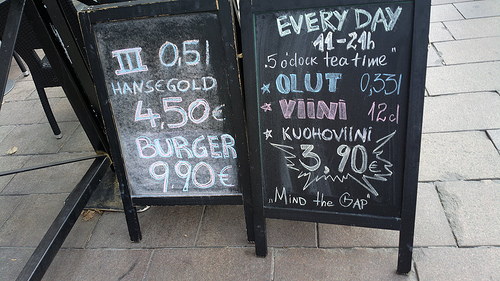 III 0,5l
HANSEGOLD
4,50€
BURGER
9,90€
EVERY DAY
11-21h
"5 o'clock tea time"
OLUT 0,33l
VIINI 12cl
KUOHOVIINI
3,90€
"MIND the GAP"